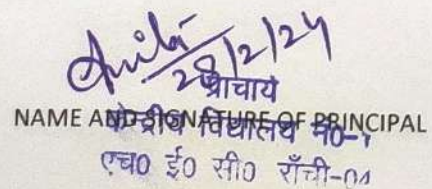 28/2/24
प्राचार्य
NAME AND SIGNATURE OF PRINCIPAL
केन्द्रीय विद्यालय नं0-1
एच0 ई0 सी0 राँची-04